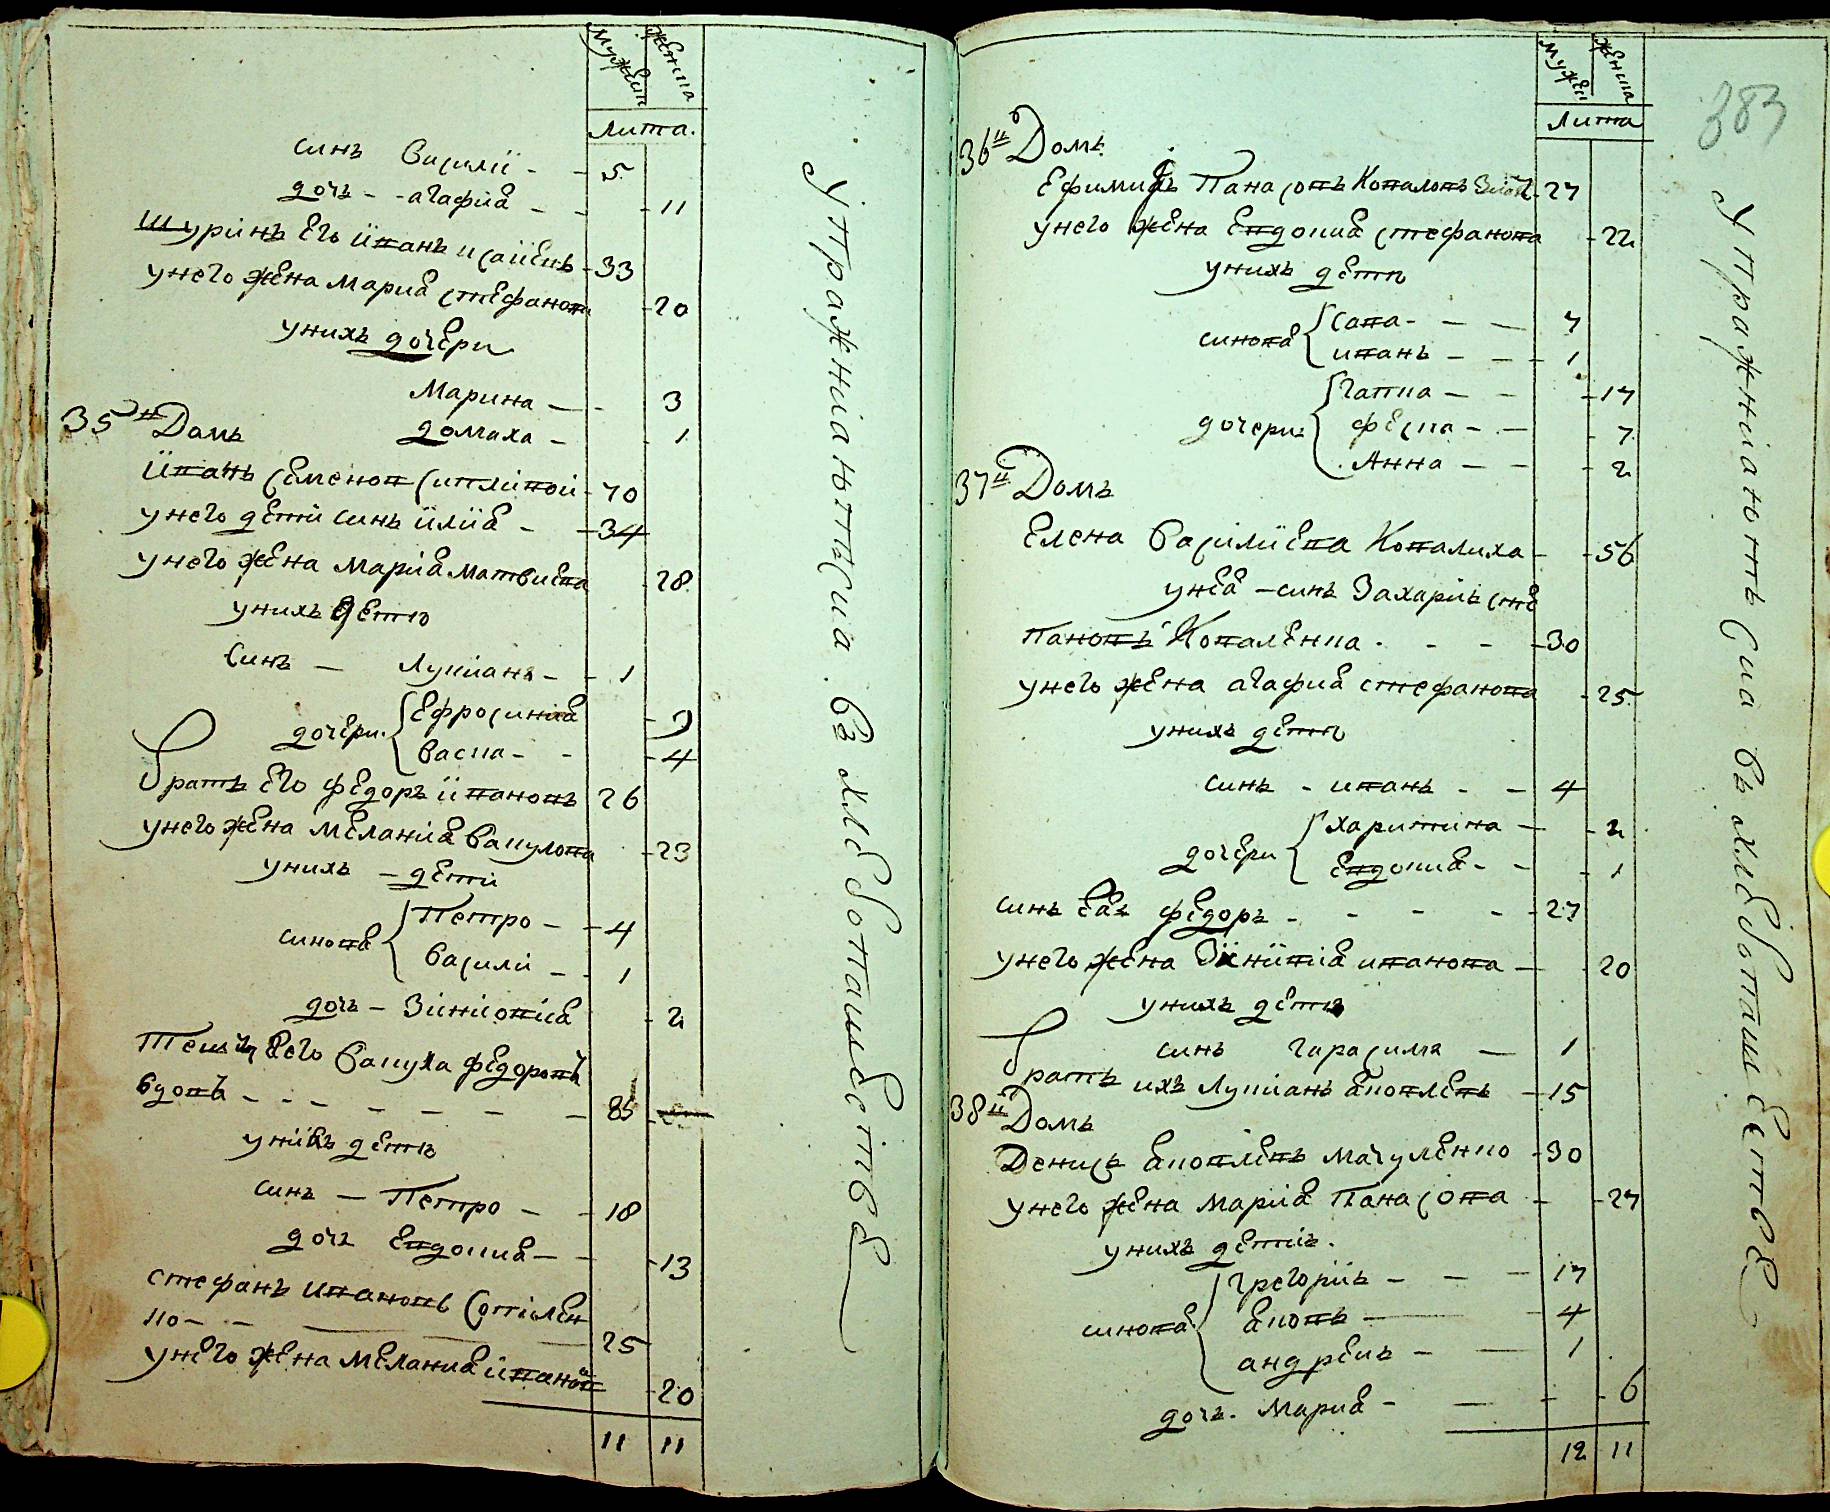 мужеск женска
Лита.
синъ Василій - - 5
дочь - - агафиа - - - 11
шуринъ его Иванъ исаиевъ - 33
у него жена мариа стефанова - 20
у нихъ дочери
Марина - - 3
домаха - - 1
35й Домъ
Иванъ семенов ситнковой - 70
у него дети синъ илиа - - 34
у него жена мариа матвиева - 28
у нихъ дети
Синъ - Лукианъ - - 1
дочери Ефросиниа - 9
Васка - - - 4
братъ его федоръ ивановъ 26
у него жена мелания вакулова - 23
у нихъ - дети
синова Петро - - 4
Василь - - 1
дочь - Зиновиа - 2
его вакула федоровъ
вдовъ - - - - - - - 85
у нихъ дети
синъ - Петро - - 18
дочъ Евдокиа - - - 13
стефанъ ивановъ
ко - - 25
у него жена мелания иванов - 20
11 11
Упражніаютьсиа въ хлебопашестве
383
мужеск женска
Лита
36й Домъ
Ефимиа Панасовъ Ковалювъ - 27
у него жена Евдокиа стефанова - 22
у нихъ дети
синова Сава - - - 7
иванъ - - - 1
дочери Гапка - - - 17
феска - - - 7
Анна - - - 2
37й Домъ
Елена Василиева Ковалиха - - 56
у неа - синъ Захаріъ сте
пановъ Коваленка - - - 30
у него жена агафиа стефанова - 25
у нихъ дети
синъ - иванъ - - 4
дочери харитина - - 2
Евдокиа - - - 1
синъ еа федоръ - - - - - 27
у него жена иванова - - 20
у нихъ дети
синъ гарасимъ - 1
братъ ихъ Лукианъ аковлевъ - 15
38й Домъ
Денисъ аковлевъ мачуленко - 30
у него жена Мариа Панасова - - 27
у нихъ дети.
синова григоріъ - - - 17
аковъ - - 4
андреиъ - - 1
дочъ. Мариа - - - - 6
12 11
Упражніаютъсиа въ хлебопашестве